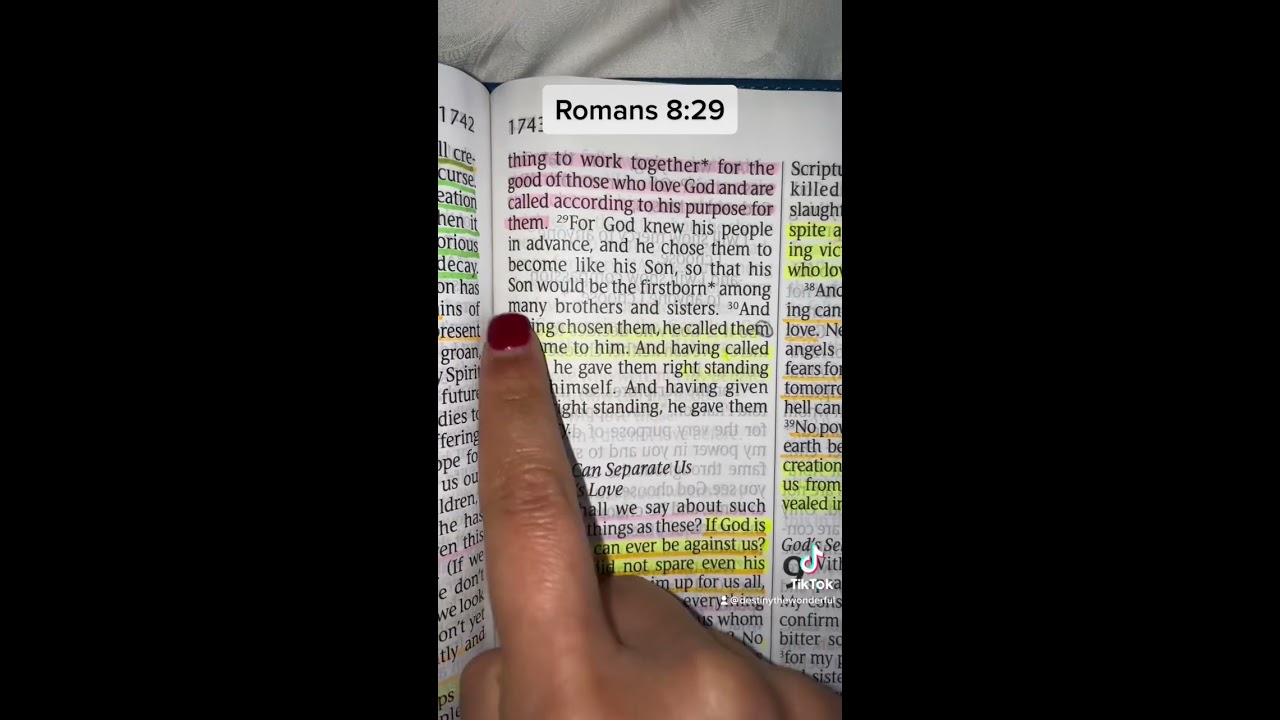 Romans 8:29
1742
ll cre-
curse.
eation
hen it
orious
decay.
on has
ins of
resent
groan,
Spirit
future
dies to
ffering
ope for
us ou
ldren,
he has
en this
(If we
e don't
we look
on't yet
tly and
ps
1743
thing to work together* for the
good of those who love God and are
called according to his purpose for
them. 29For God knew his people
in advance, and he chose them to
become like his Son, so that his
Son would be the firstborn* among
many brothers and sisters. 30And
ing chosen them, he called them
me to him. And having called
he gave them right standing
himself. And having given
ight standing, he gave them
y.
Can Separate Us
s Love
hall we say about such
things as these? If God is
can ever be against us?
id not spare even his
im up for us all,
everything
us whom
? No
Scriptu
killed
slaught
spite a
ing vic
who lov
38And
ing can
love. Ne
angels
fears for
tomorro
hell can
39No pow
earth be
creation
us from
vealed in
God's Se
9
With
my cons
confirm
bitter so
3for my p
d siste
TikTok
@destinythewonderful